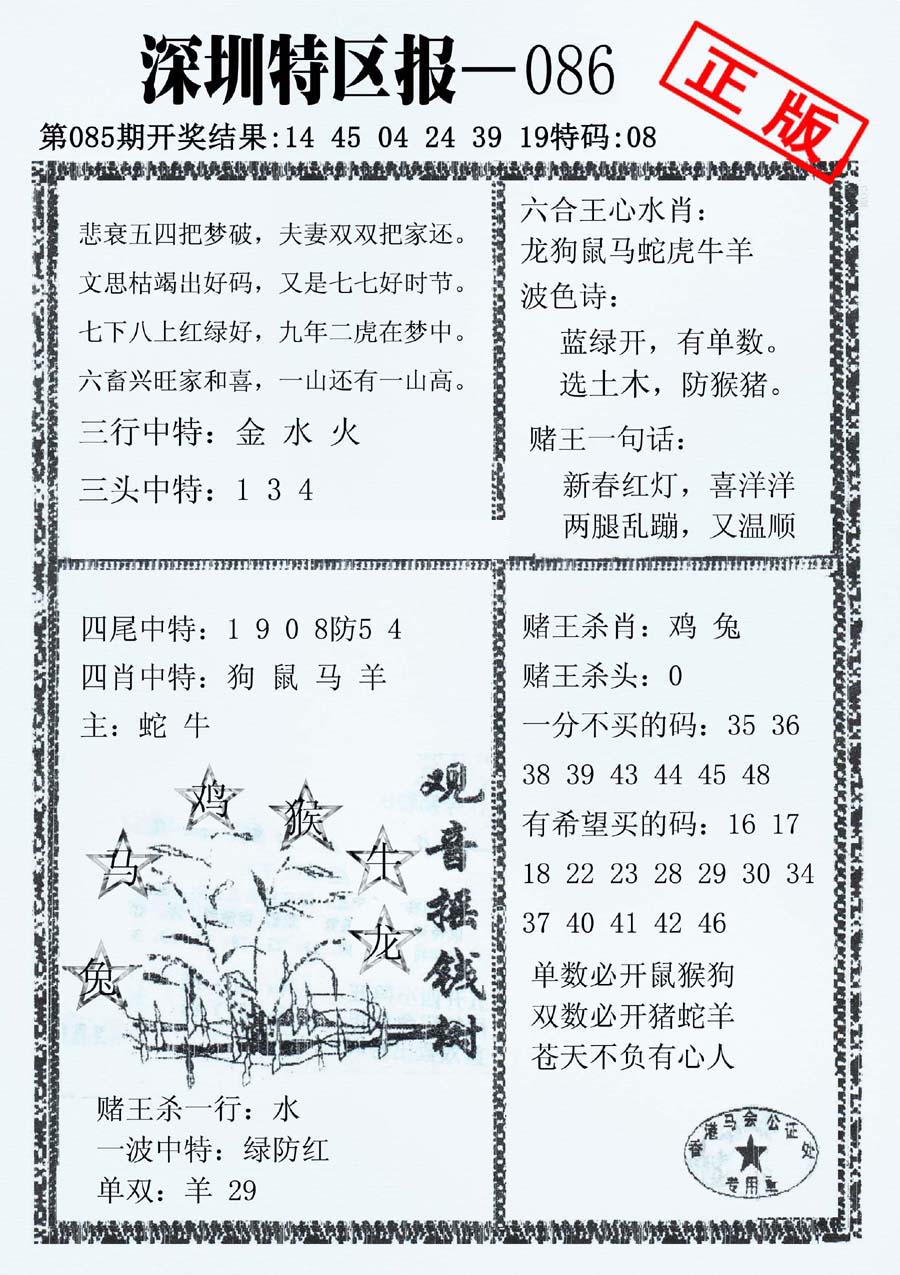 深圳特区报—086
正版
第085期开奖结果:14 45 04 24 39 19特码:08
悲哀五四把梦破，夫妻双双把家还。
文思枯竭出好码，又是七七好时节。
七下八上红绿好，九年二虎在梦中。
六畜兴旺家和喜，一山还有一山高。
三行中特：金 水 火
三头中特：1 3 4
六合王心水肖：
龙狗鼠马蛇虎牛羊
波色诗：
蓝绿开，有单数。
选土木，防猴猪。
赌王一句话：
新春红灯，喜洋洋
两腿乱蹦，又温顺
四尾中特：1 9 0 8防5 4
四肖中特：狗 鼠 马 羊
主：蛇 牛
鸡
猴
马
牛
龙
兔
观音摇钱树
赌王杀一行：水
一波中特：绿防红
单双：羊 29
赌王杀肖：鸡 兔
赌王杀头：0
一分不买的码：35 36
38 39 43 44 45 48
有希望买的码：16 17
18 22 23 28 29 30 34
37 40 41 42 46
单数必开鼠猴狗
双数必开猪蛇羊
苍天不负有心人
香港马会公证处
专用章